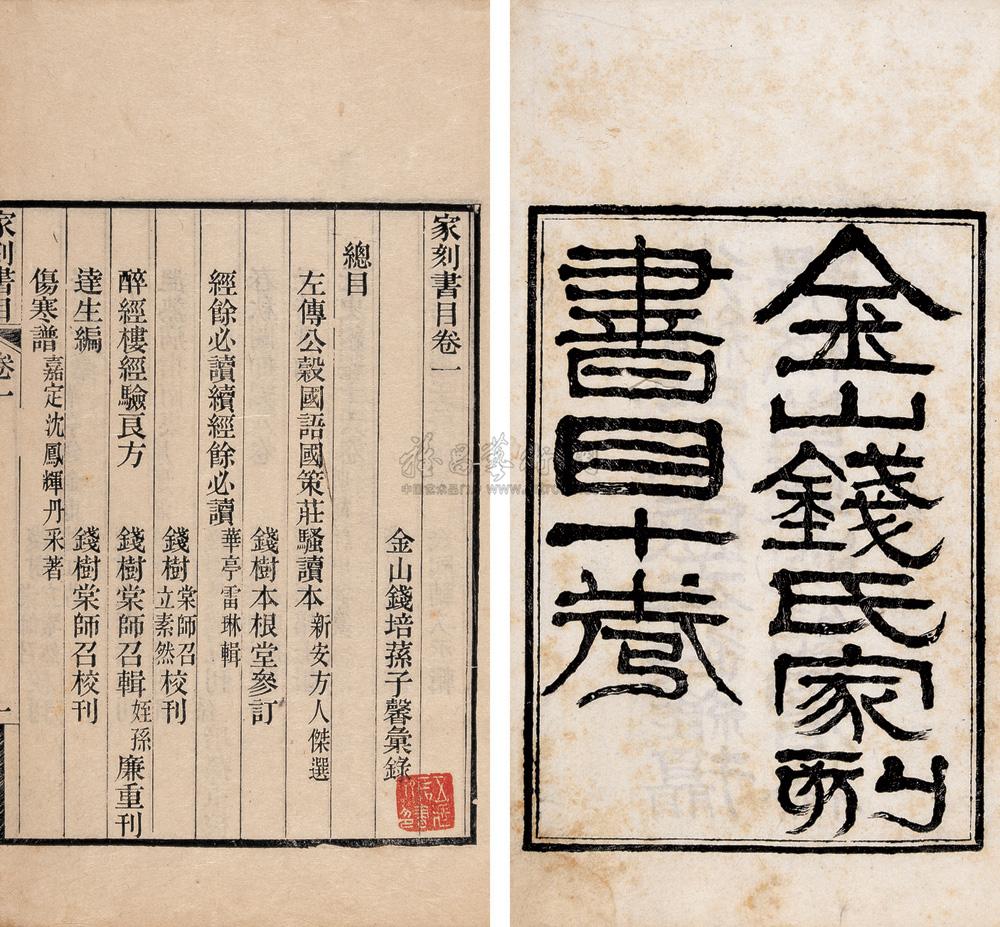 金山錢氏家刻
書目十卷
家刻書目卷一
金山錢培蓀子馨彙錄
總目
左傳公穀國語國策莊騷讀本 新安方人傑選
錢樹本根堂參訂
經餘必讀續經餘必讀 華亭雷琳輯
錢樹棠師召立素然校刊
醉經樓經驗良方 錢樹棠師召輯姪孫廉重刊
達生編 錢樹棠師召校刊
傷寒譜 嘉定沈鳳輝丹采著
家刻書目 卷一 一